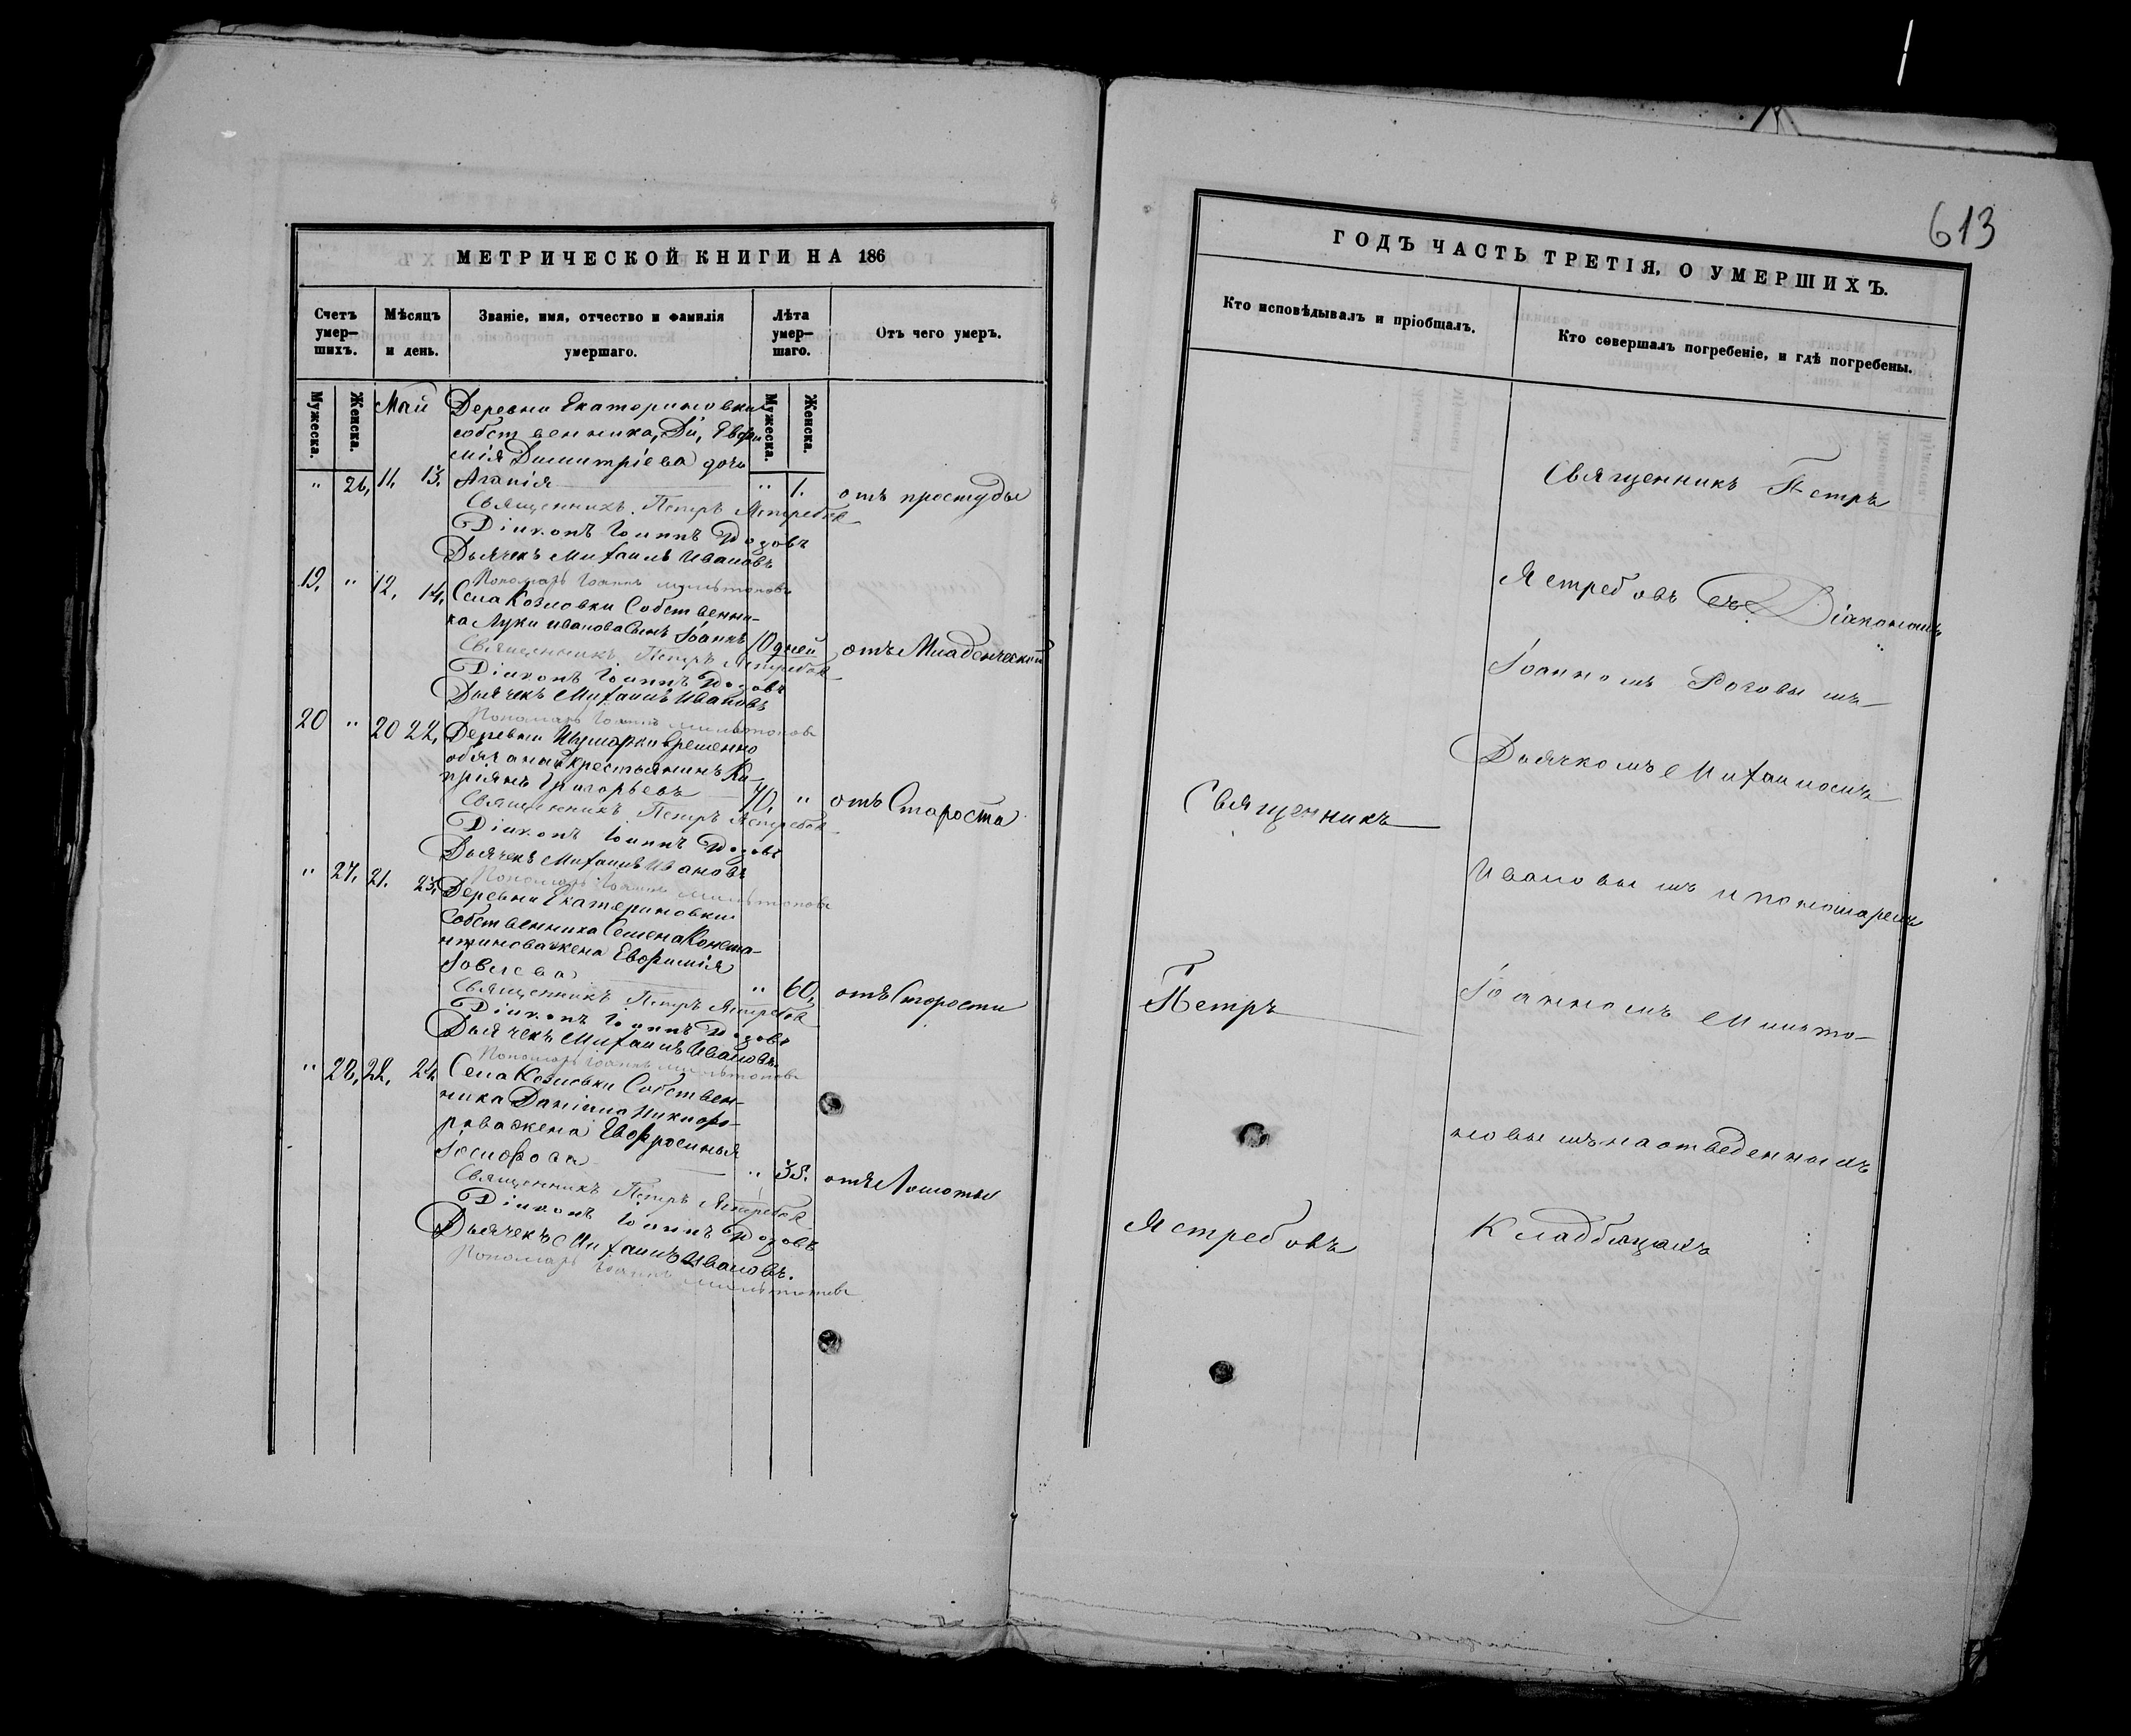 МЕТРИЧЕСКОЙ КНИГИ НА 186
Счетъ умер–шихъ.
Мѣсяцъ и день.
Званіе, имя, отчество и фамилія умершаго.
Лѣта умер–шаго.
Отъ чего умеръ.
Мужеска.
Женска.
Мужеска.
Женска.
Май Деревни Екатериновки
собственника,
мія Димитріева дочь
" 26, 11. 13. Агапія " 1. отъ простуды
Священникъ Петръ Ястребовъ
Діаконъ Іоаннъ Роговъ
Дьячекъ Михаилъ Ивановъ
Пономарь Іоаннъ Мильтоновъ
19. " 12. 14. Села Козловки Собственни–
ка Луки Иванова Сынъ Іоаннъ 10 дней отъ Младенческой
Священникъ Петръ Ястребовъ
Діаконъ Іоаннъ Роговъ
Дьячекъ Михаилъ Ивановъ
Пономарь Іоаннъ Мильтоновъ
20 " 20 22. Деревни временно
обязанный крестьянинъ Ки–
пріянъ Григорьевъ 70, " отъ Староста
Священникъ Петръ Ястребовъ
Діаконъ Іоаннъ Роговъ
Дьячекъ Михаилъ Ивановъ
Пономарь Іоаннъ Мильтоновъ
" 27. 21. 23. Деревни Екатериновки
Собственника Семена Конста–
нтинова жена Евфимія
Іовлева " 60, отъ Старости
Священникъ Петръ Ястребовъ
Діаконъ Іоаннъ Роговъ
Дьячекъ Михаилъ Ивановъ
Пономарь Іоаннъ Мильтоновъ
" 28, 22. 24 Села Козловки Собствен–
ника Даніила Никифо–
рова жена Евфросинья
" 35. отъ Ломоты
Священникъ Петръ Ястребовъ
Діаконъ Іоаннъ Роговъ
Дьячекъ Михаилъ Ивановъ.
Пономарь Іоаннъ Мильтоновъ
613
ГОДЪ ЧАСТЬ ТРЕТІЯ, О УМЕРШИХЪ.
Кто исповѣдывалъ и пріобщалъ.
Кто совершалъ погребеніе, и гдѣ погребены.
Священникъ
Петръ
Ястребовъ
Священникъ Петръ
Ястребовъ съ Діакономъ
Іоанномъ Роговымъ
Дьячкомъ Михаиломъ
Ивановымъ и пономаремъ
Іоанномъ Мильто–
новымъ на отведенныхъ
Кладбищахъ